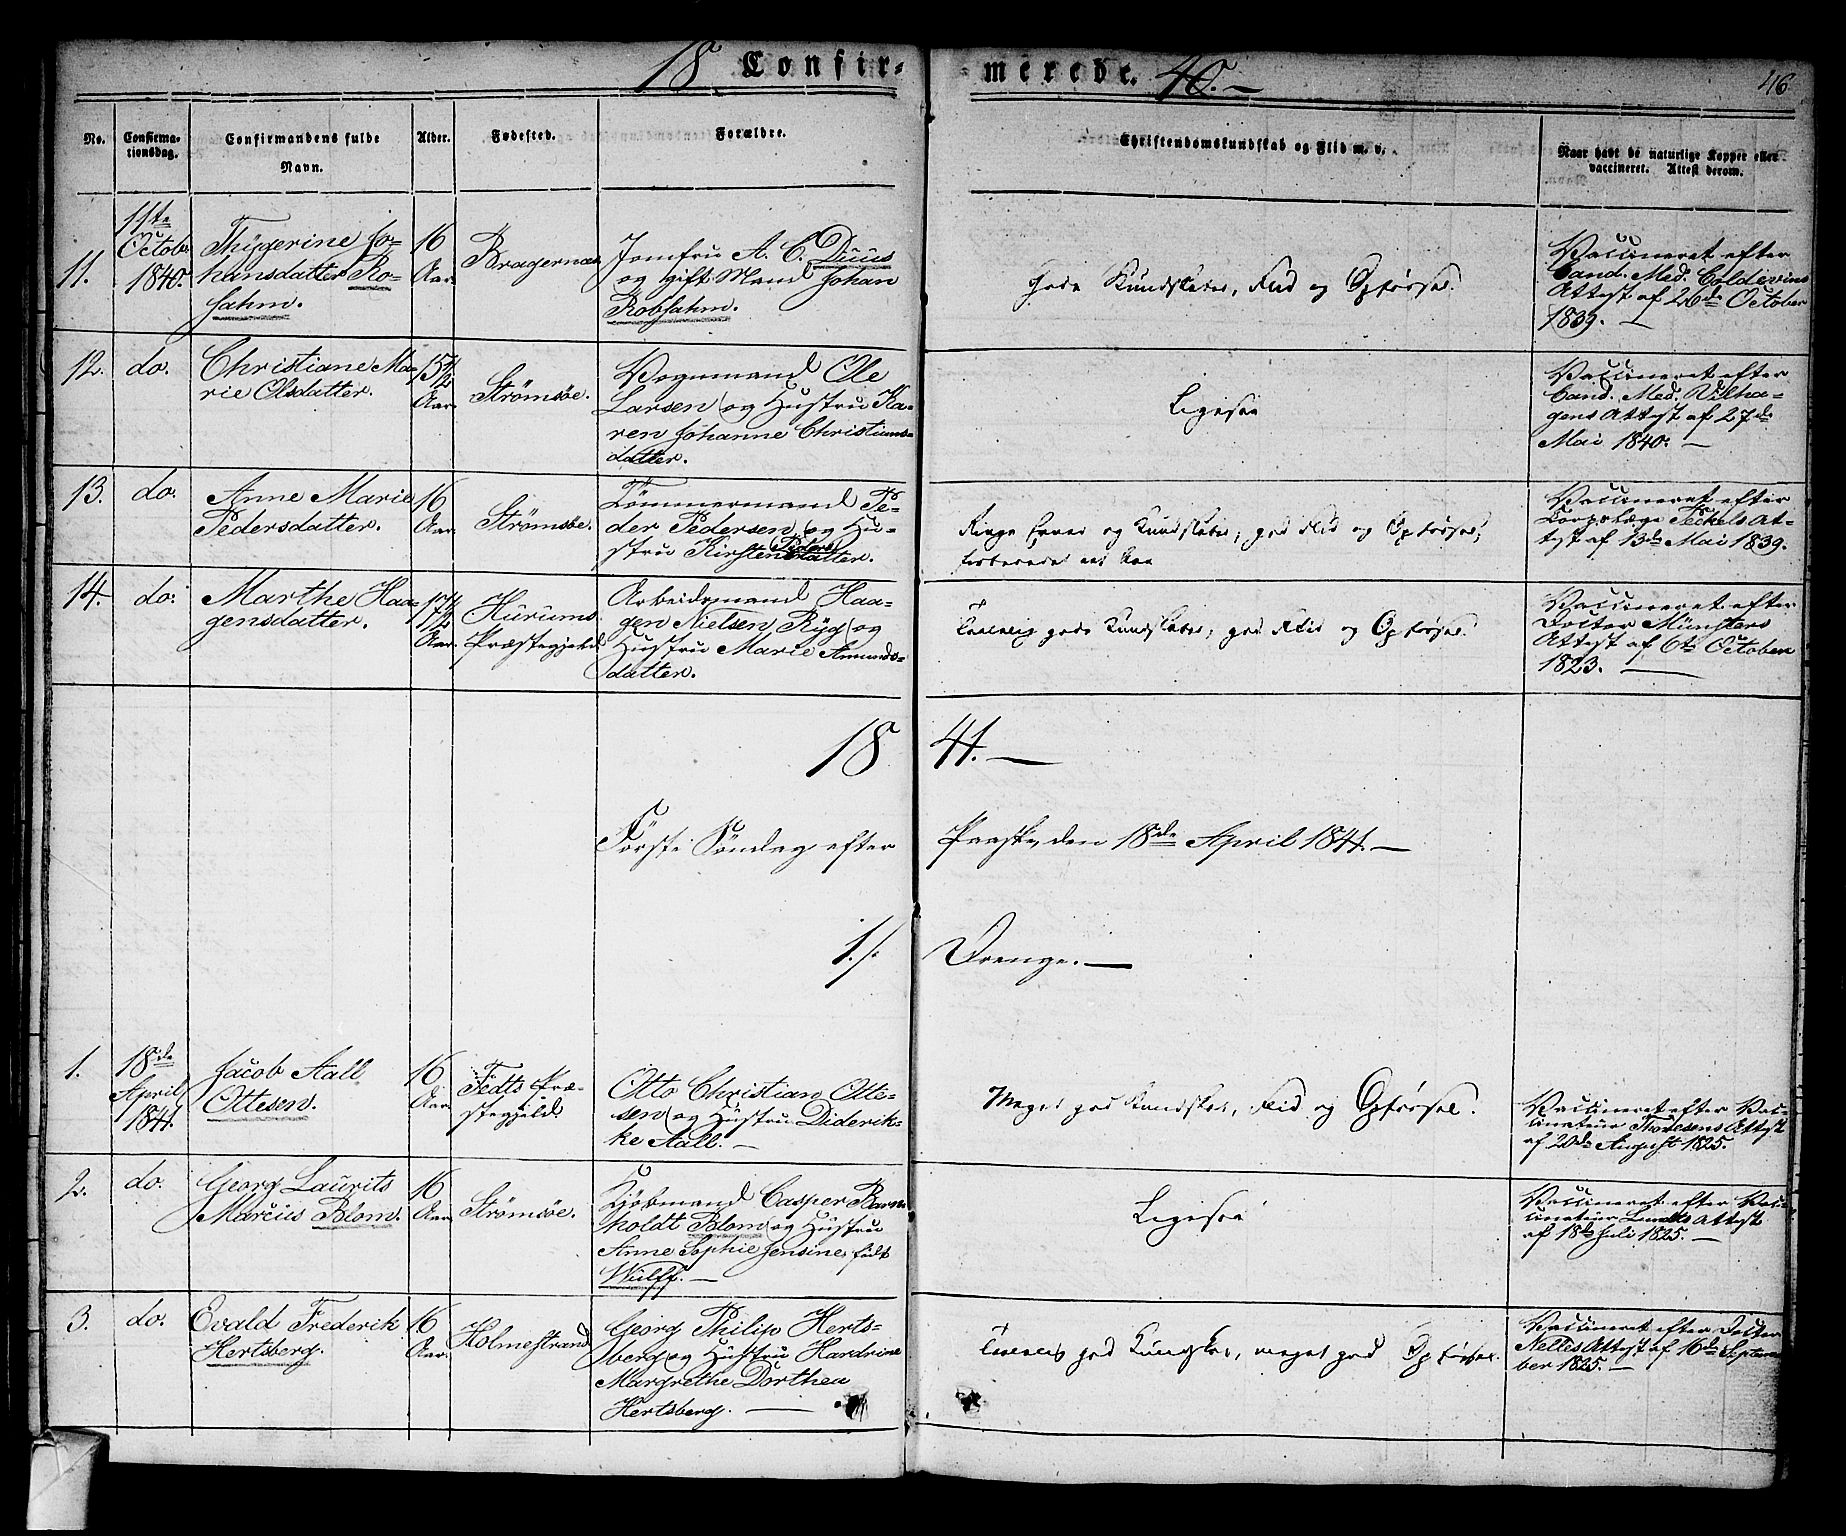 18 Confir-
merede. 40.-
46
No.
Confirma-
tionsdag.
Confirmandens fulde
Navn.
Alder.
Fødested.
Forældre.
Christendomskundskab og Flid m. v.
Naar havt de naturlige Kopper eller
vaccineret. Attest derom.
11.
11te
Octob
1840.
Thygerine Jo-
hansdatter Ro-
sahm.
16
Aar.
Bragernæs
Jomfru A. C. Duus
og gift Mand Johan
Robsahm.
Gode Kundskaber, Flid og Opførsel.
Vaccineret efter
Cand. Med. Coldevins
Attest af 26de October
1839. -
12.
do.
Christiane Ma-
rie Olsdatter.
15 1/2
Aar.
Strömsöe.
Vognmand Ole
Larsen og Hustru Ka-
ren Johanne Christians-
datter.
Ligesaa
Vaccineret efter
Cand. Med. Vilha-
gens Attest af 27de
Mai 1840. -
13.
do.
Anne Marie
Pedersdatter.
16
Aar.
Strömsöe.
Tömmermand Pe-
der Pedersen og Hu-
stru Kirsten Peders
datter.
Ringe Evner og Kundskaber, god Flid og Opførsel,
Vaccineret efter
Corpslæge Teckels At-
test af 13de Mai 1839.
14.
do.
Marthe Haa-
gensdatter.
17 1/2
Aar.
Hurums
Præstegjeld
Arbeidsmand Haa-
gen Nielsen Ryg og
Hustru Marie Amunds-
datter.
Temmelig gode Kundskaber, god Flid og Opførsel.
Vaccineret efter
Doctor Münsters
Attest af 6te October
1823. -
18 41. -
Förste Söndag efter Paaske, den 18de April 1841. -
1./. Drenge. -
1.
18de
April
1841.
Jacob Aall
Ottesen.
16
Aar
Fedts Præ-
stegjeld
Otto Christian Otte-
sen og Hustru Diderik-
ke Aall. -
Meget god Kundskab, Flid og Opførsel.
Vaccineret efter Vac-
cinateur Thoresens Attest
af 20de August 1825.
2.
do.
Georg Laurits
Marcius Blom.
16
Aar
Strömsöe.
Kjöbmand Casper
holdt Blom og Hustru
Anne Sophie Jensine, födt
Wulff. -
Ligesaa
Vaccineret efter Vac-
cinateur Lunds Attest
af 18de Juli 1825. -
3.
do.
Evald Frederik
Hertsberg.
16
Aar.
Holmestrand
Georg Philip Herts-
berg og Hustru Hardrine
Margrethe Dorthea
Hertsberg. -
Temmelig god Kundskab, meget god Opførsel.
Vaccineret efter Doctor
Nelles Attest af 16de Septem-
ber 1825. -